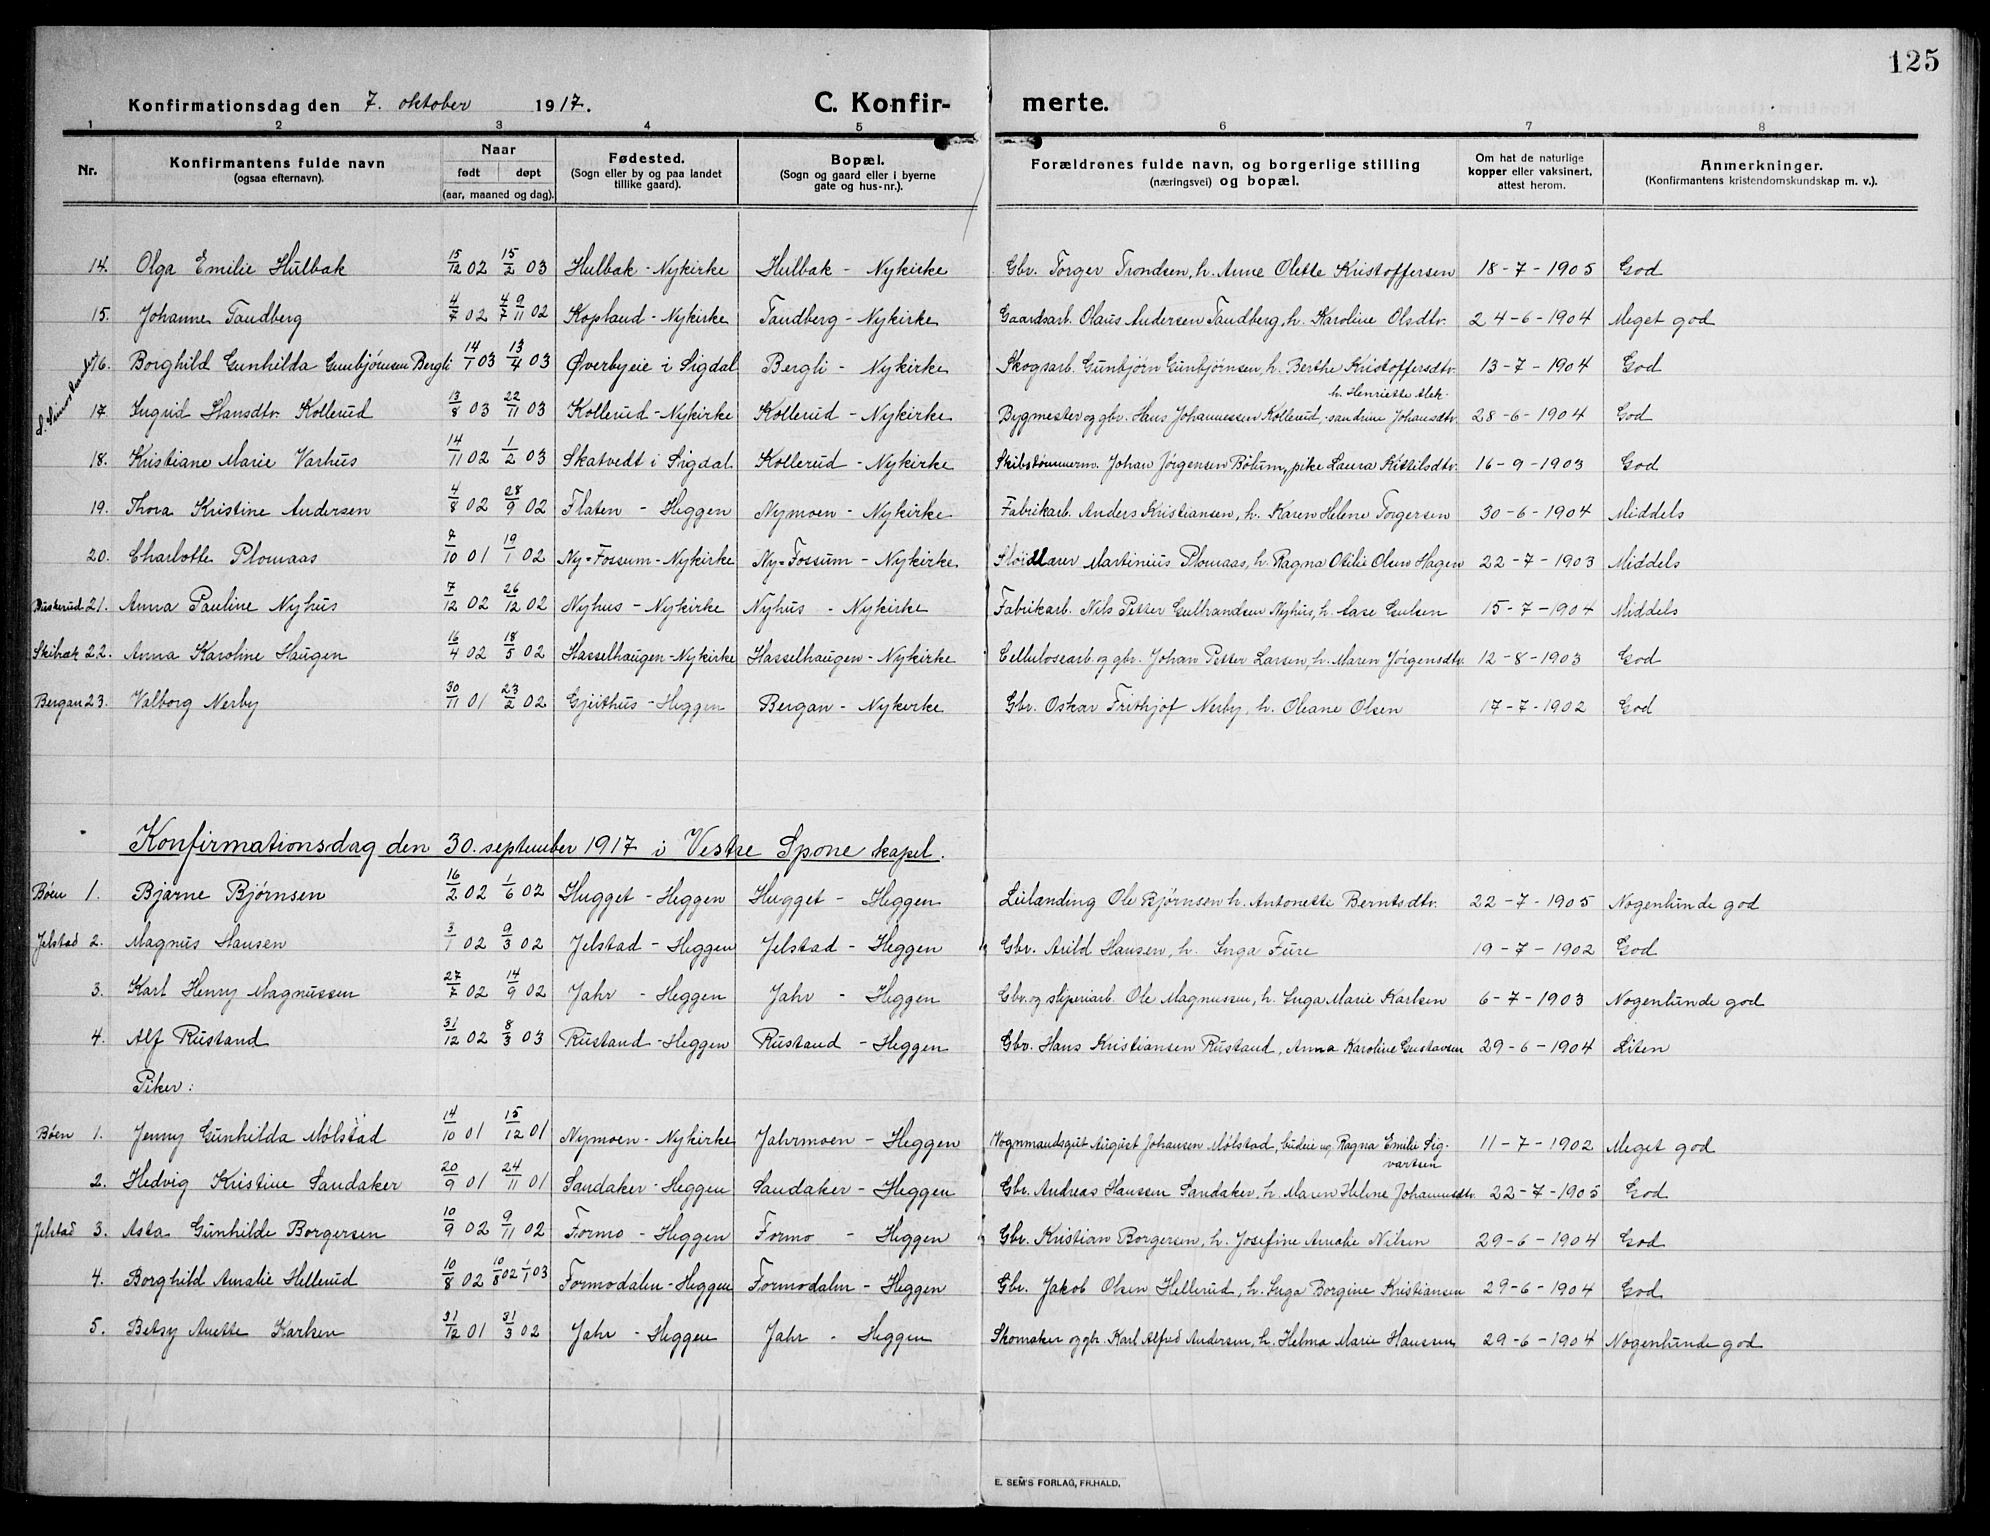 125
Konfirmationsdag den 7. oktober 1917. C. Konfir- merte.
1 2 3 4 5 6 7 8
Nr. Konfirmantens fulde navn (ogsaa efternavn). Naar født døpt (aar, maaned og dag). Fødested. (Sogn eller by og paa landet tillike gaard). Bopæl. (Sogn og gaard eller i byerne gate og hus-nr.). Forældrenes fulde navn, og borgerlige stilling (næringsvei) og bopæl. Om hat de naturlige kopper eller vaksinert, attest herom. Anmerkninger. (Konfirmantens kristendomskundskap m. v.).
14. Olga Emilie Hulbak 15/12 02 15/2 03 Hulbak - Nykirke Hulbak - Nykirke Gbr. Torger Trondsen, h. Anne Olette Kristoffersen 18-7-1905 God
15. Johanne Tandberg 4/7 02 4/7 9/11 02 Kopland - Nykirke Tandberg - Nykirke Gaardsarb. Olaus Andersen Tandberg, h. Karoline Olsdtr. 24-6-1904 Meget god
16. Borghild Gunhilda Gunbjørnsen Bergli 14/1 03 13/4 03 Øverbyeie i Sigdal Bergli - Nykirke Skogsarb. Gunbjørn Gunbjørnsen, h. Berthe Kristoffersdtr. 13-7-1904 God
17. Ingrid Hansdtr. Kollerud 13/8 03 22/11 03 Kollerud - Nykirke Kollerud - Nykirke Bygmester og gbr. Hans Johannessen Kollerud, h. Henriette Alek-sandrine Johansdtr. 28-6-1904 God
18. Kristiane Marie Varhus 14/11 02 1/2 03 Skatvedt i Sigdal Kollerud - Nykirke Skibstømmerm. Johan Jørgensen Bølum, pike Laura Kittilsdtr. 16-9-1903 God
19. Thora Kristine Andersen 4/8 02 28/9 02 Flaten - Heggen Nymoen - Nykirke Fabrikarb. Anders Kristiansen, h. Karen Helene Torgersen 30-6-1904 Middels
20. Charlotte Plomaas 7/10 01 19/1 02 Ny-Fossum - Nykirke Ny-Fossum - Nykirke Martinius Plomaas, h. Ragna Otilie Olsen Hagen 22-7-1903 Middels
Buskerud 21. Anna Pauline Nyhus 7/12 02 26/12 02 Nyhus - Nykirke Nyhus - Nykirke Fabrikarb. Nils Petter Gulbrandsen Nyhus, h. Aase Gulsen 15-7-1904 Middels
Skibræk 22. Anna Karoline Haugen 16/4 02 18/5 02 Hasselhaugen - Nykirke Hasselhaugen - Nykirke Cellulosearb. og gbr. Johan Petter Larsen, h. Maren Jørgensdtr. 12-8-1903 God
Bergan 23. Valborg Nerby 30/11 01 23/2 02 Gjeithus - Heggen Bergan - Nykirke Gbr. Oskar Frithjof Nerby, h. Oleane Olsen 17-7-1902 God
Konfirmationsdag den 30. september 1917 i Vestre Spone kapel.
Bøen 1. Bjarne Bjørnsen 16/2 02 1/6 02 Hugget - Heggen Hugget - Heggen Leilænding Ole Bjørnsen h. Antonette Berntsdtr. 22-7-1905 Nogenlunde god
Jelstad 2. Magnus Hansen 3/1 02 9/3 02 Jelstad - Heggen Jelstad - Heggen Gbr. Arild Hansen, h. Inga Fure 19-7-1902 God
3. Karl Henry Magnussen 27/7 02 14/9 02 Jahr - Heggen Jahr - Heggen Gbr. og sliperiarb. Ole Magnussen, h. Inga Marie Karlsen 6-7-1903 Nogenlunde god
4. Alf Rustand 31/12 02 8/3 03 Rustand - Heggen Rustand - Heggen Gbr. Hans Kristiansen Rustand, Anna Karoline Gustavsen 29-6-1904 Liten
Piker:
Bøen 1. Jenny Gunhilda Mølstad 14/10 01 15/12 01 Nymoen - Nykirke Jahrmoen - Heggen Vognmandsgut August Johansen Mølstad, budeie ug. Ragna Emilie Sig-vartsen 11-7-1902 Meget god
2. Hedvig Kristine Sandaker 20/9 01 24/11 01 Sandaker - Heggen Sandaker - Heggen Gbr. Andreas Hansen Sandaker, h. Maren Heline Johannesdtr. 22-7-1905 God
Jelstad 3. Asta Gunhilde Borgersen 10/9 02 9/11 02 Formo - Heggen Formo - Heggen Gbr. Kristian Borgersen, h. Josefine Amalie Nilsen 29-6-1904 God
4. Borghild Amalie Hellerud 10/8 02 10/8 02 1/1 03 Formodalen - Heggen Formodalen - Heggen Gbr. Jakob Olsen Hellerud, h. Inga Borgine Kristiansen 29-6-1904 God
5. Betsy Anette Karlsen 31/12 01 31/3 02 Jahr - Heggen Jahr - Heggen Skomaker og gbr. Karl Alfred Andersen, h. Helma Marie Hansen 29-6-1904 Nogenlunde god
E. SEM'S FORLAG, FR.HALD.